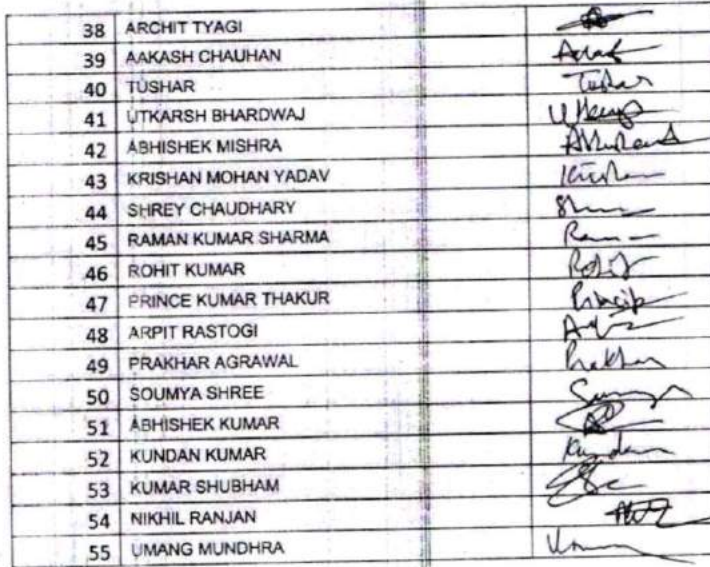 38 ARCHIT TYAGI
39 AAKASH CHAUHAN
40 TUSHAR Tushar
41 UTKARSH BHARDWAJ
42 ABHISHEK MISHRA
43 KRISHAN MOHAN YADAV
44 SHREY CHAUDHARY
45 RAMAN KUMAR SHARMA
46 ROHIT KUMAR Rohit
47 PRINCE KUMAR THAKUR
48 ARPIT RASTOGI
49 PRAKHAR AGRAWAL Prakhar
50 SOUMYA SHREE
51 ABHISHEK KUMAR
52 KUNDAN KUMAR Kundan
53 KUMAR SHUBHAM
54 NIKHIL RANJAN
55 UMANG MUNDHRA